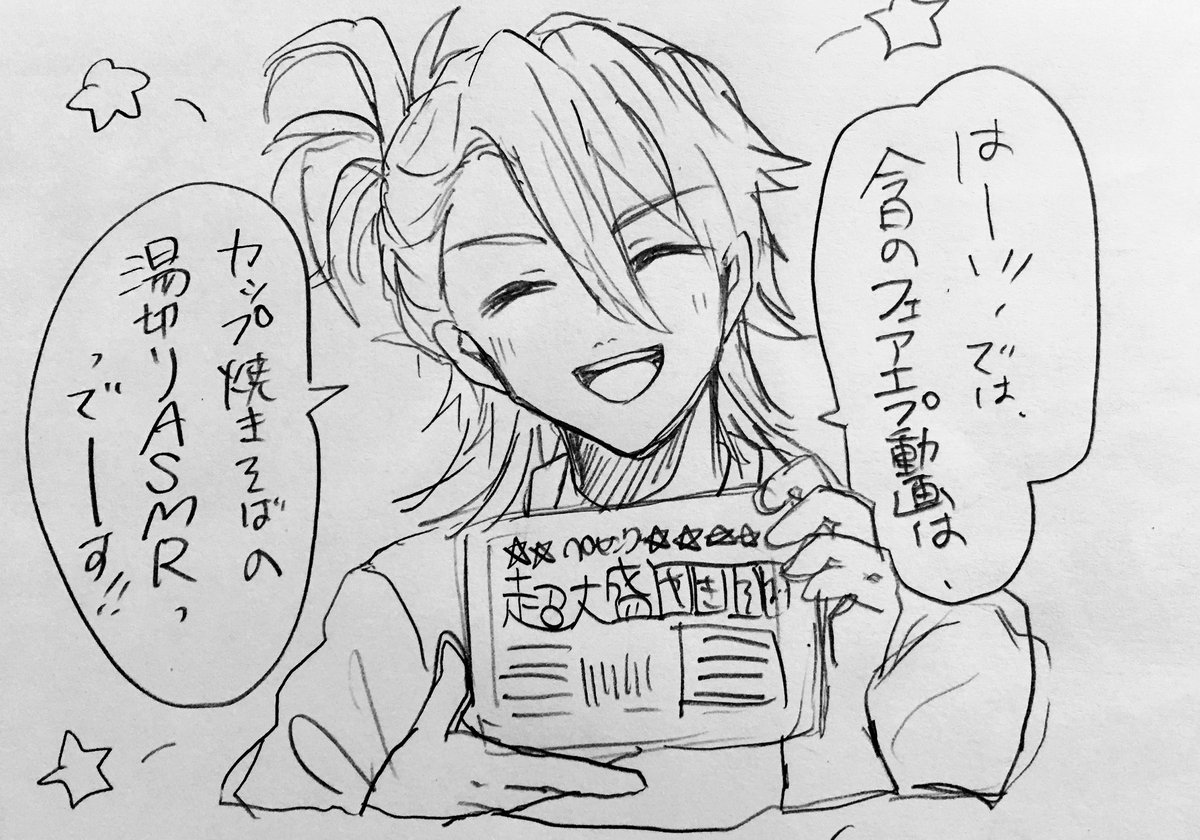 はーいッ、では、
今日のフェアエプ動画は、
カップ焼きそばの
湯切りASMR、
、でーす!!
超大盛やきそば